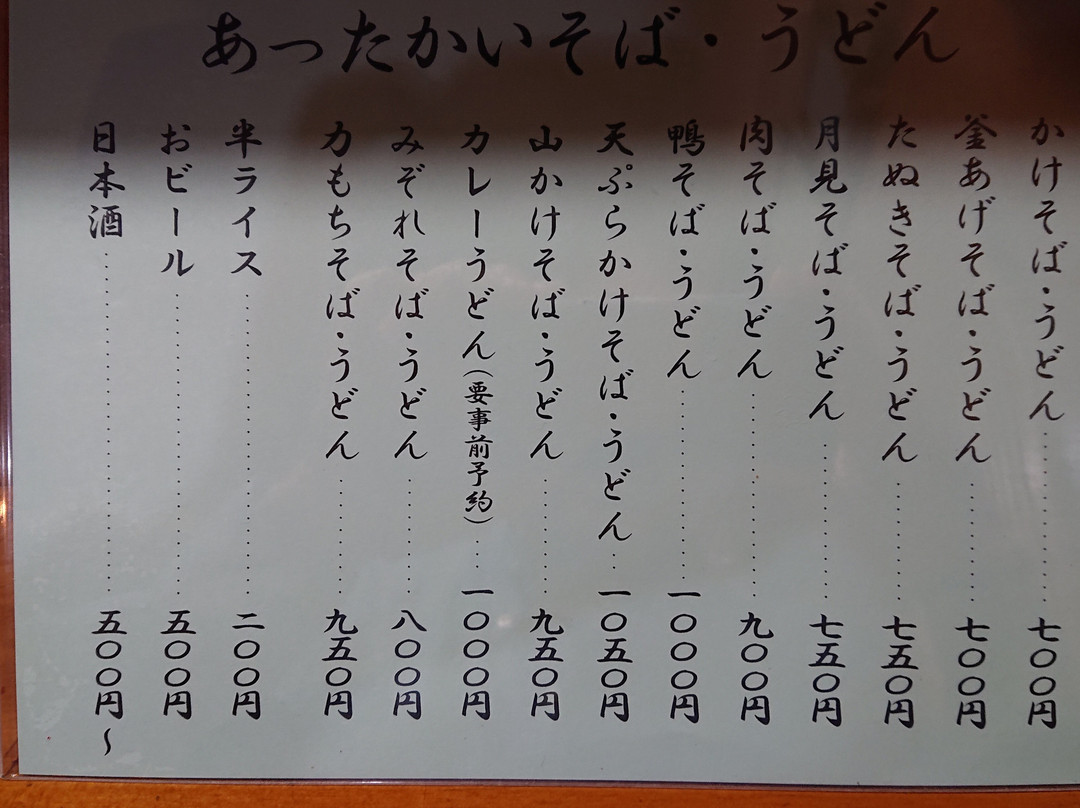 あったかいそば・うどん
かけそば・うどん………七〇〇円
釜あげそば・うどん………七〇〇円
たぬきそば・うどん………七五〇円
月見そば・うどん………七五〇円
肉そば・うどん………九〇〇円
鴨そば・うどん………一〇〇〇円
天ぷらかけそば・うどん…一〇五〇円
山かけそば・うどん………九五〇円
カレーうどん（要事前予約）…一〇〇〇円
みぞれそば・うどん………八〇〇円
力もちそば・うどん………九五〇円
半ライス………二〇〇円
おビール………五〇〇円
日本酒………五〇〇円～